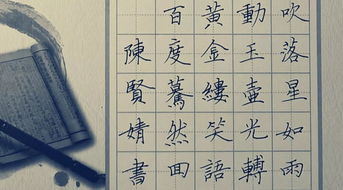 吹落星如雨
動玉壺光轉
黃金縷笑語
百度驀然回
陳賢婧書